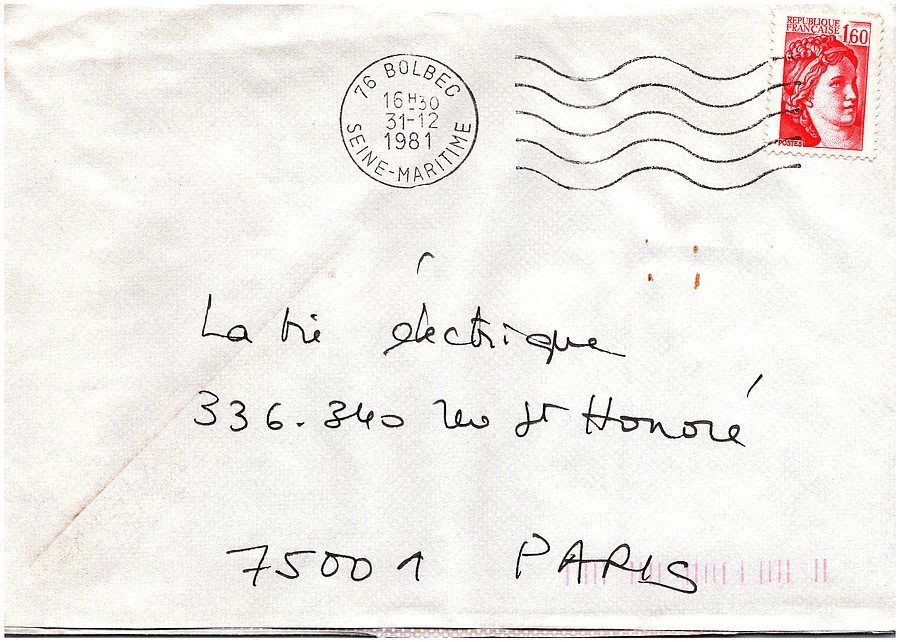 REPUBLIQUE
FRANÇAISE 1,60
POSTES
76 BOLBEC
16H30
31-12
1981
SEINE-MARITIME
La vie électrique
336.340 rue St Honoré
75001 PARIS